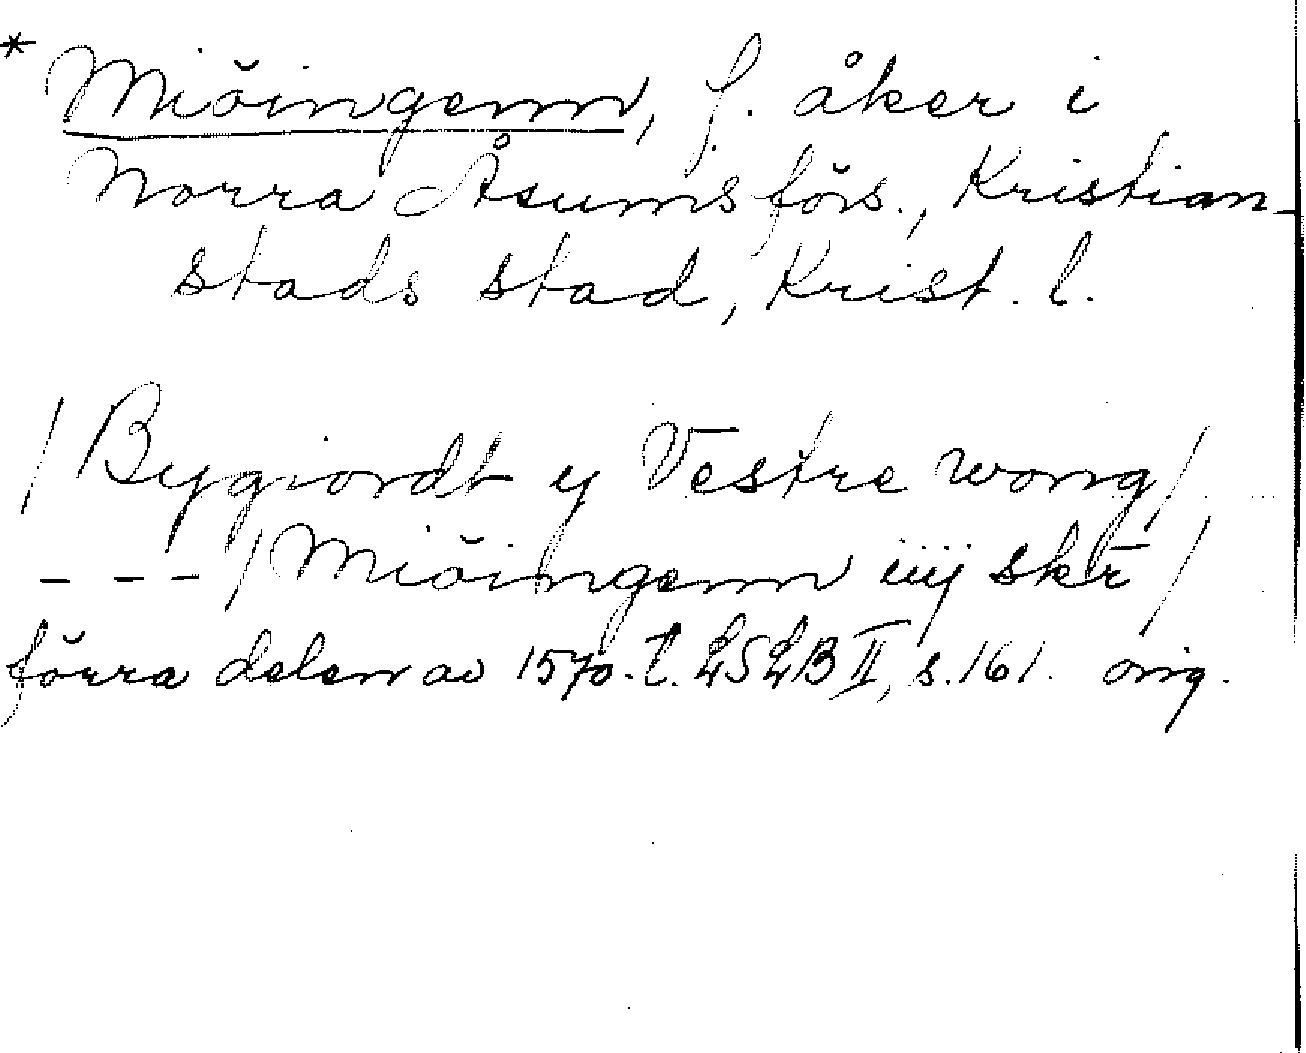 * Miöingenn, f. åker i
Norra Åsums förs., Kristian-
stads stad, Krist. l.
/ Bygiordt y Vestre wong /
- - - / Miöingenn iiij skr̄ /
förra delen av 1570-t. LSLB II, s. 161. orig.